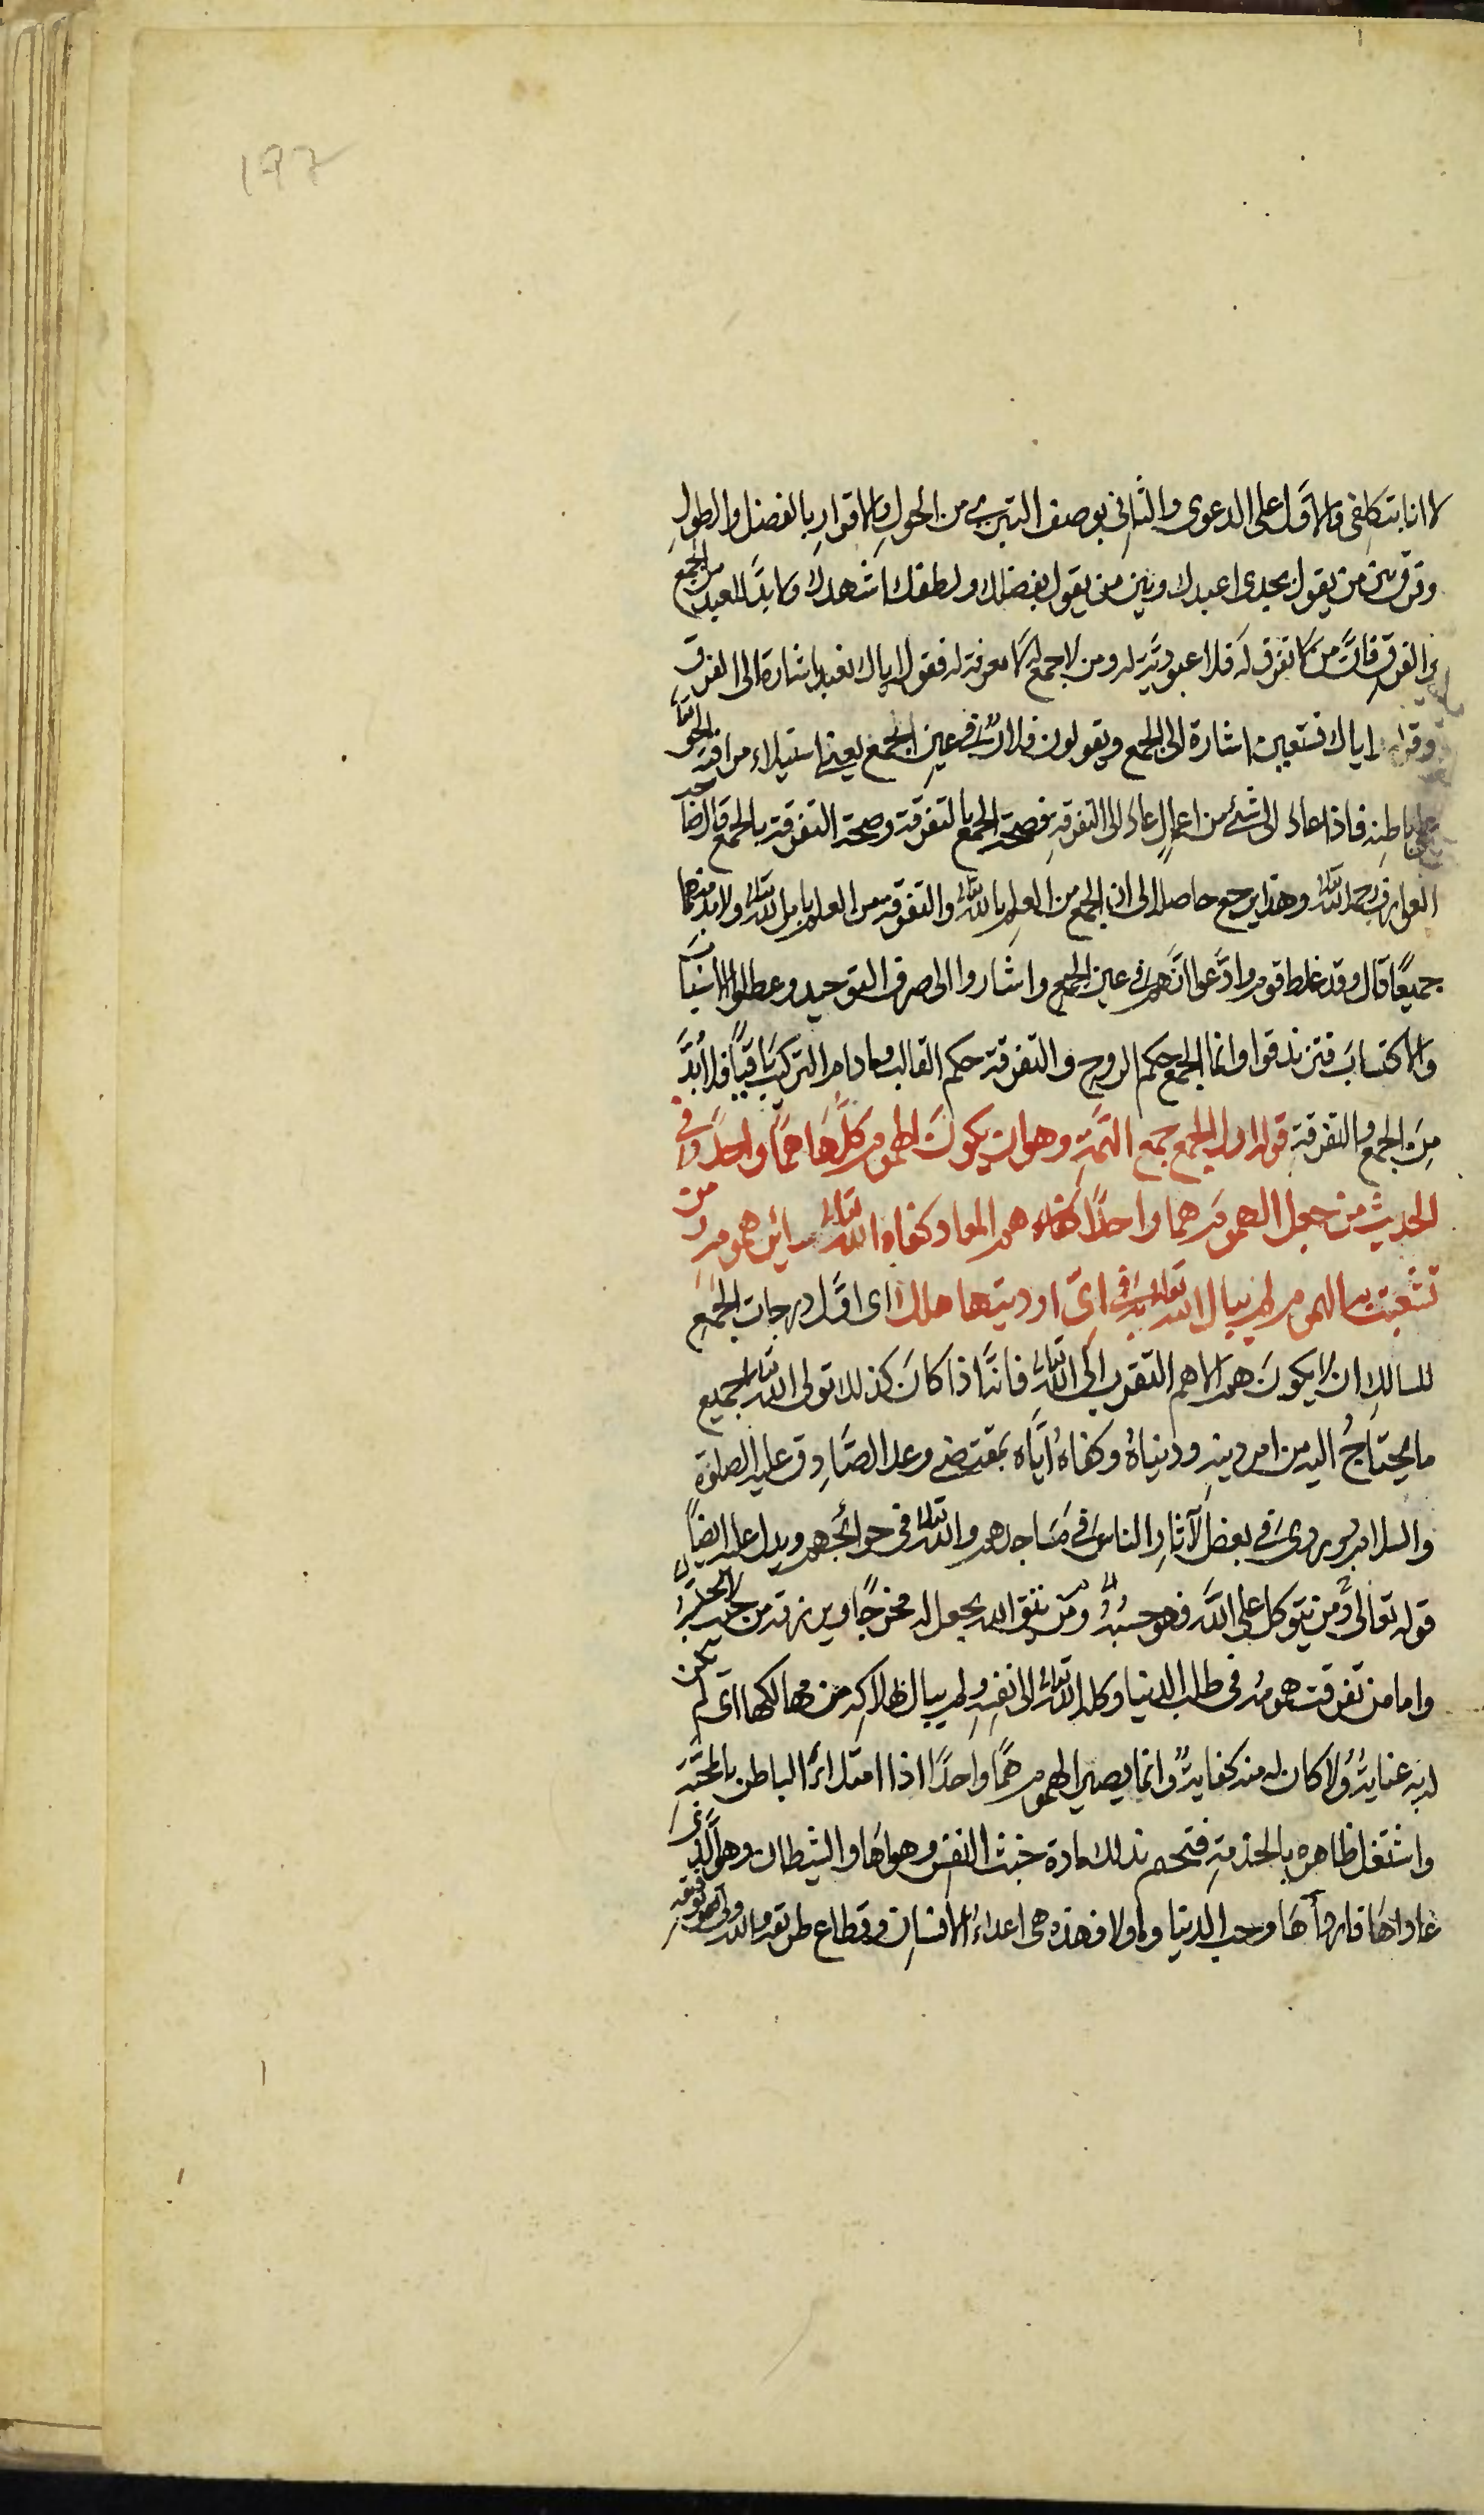 ١٩٢
لا انا بتكلفى والاول على الدعوى والثانى بوصف التبرى من الحول والاقرار بالفضل والطول
وفرق بين من يقول بجدى اعبدك وبين من يقول بفضلك ولطفك اشهدك ولا بد للعبد من الجمع
والفرق فان من لا تفرق له فلا عبودية له ومن لا جمع له لا معرفة له فقول اياك نعبد اشارة الى الفرق
وقوله اياك نستعين اشارة الى الجمع ويقولون فلان فى عين الجمع يعنى استيلاء مراقبة الحق تعالى
على باطنه فاذا عاد الى شئ من اعماله عاد الى التفرقة فصحة الجمع بالتفرقة وصحة التفرقة بالجمع قال صاحب
العوارف رحمه الله وهذا يرجع حاصله الى ان الجمع من العلم بالله تعالى والتفرقة من العلم بامر الله تعالى ولا بد منهما
جميعًا قال وقد غلط قوم وادعوا انهم فى عين الجمع واشاروا الى صرف التوحيد وعطلوا الاسباب
والاكتساب فتزندقوا وانما الجمع حكم الروح والتفرقة حكم القالب وما دام التركيب باقيًا فلا بد
من الجمع والتفرقة قوله اول الجمع جمع الهمة وهو ان يكون الهموم كلها همًا واحدًا وفى
الحديث من جعل الهموم هما واحدًا هم المعاد كفاه الله تعالى سائر همومه ومن
تشعبت به الهموم لم يبال الله تعالى فى اى اوديتها هلك اى اول درجات الجمع
للسالك ان لا يكون همه الا هم التقرب الى الله تعالى فانه اذا كان كذلك تولى الله تعالى جميع
ما يحتاج اليه من امر دينه ودنياه وكفاه اياه بمقتضى وعد الصادق عليه الصلوة
والسلام ويروى فى بعض الآثار الناس فى مساجدهم والله تعالى فى حوائجهم ويدل عليه ايضًا
قوله تعالى ومن يتوكل على الله فهو حسبه ومن يتق الله يجعل له مخرجًا ويرزقه من حيث لا يحتسب
واما من تفرقت همومه فى طلب الدنيا وكله الله تعالى الى نفسه ولم يبال بهلاكه من مهالكها اى لم يكن
لديه عناية ولا كان له منه كفاية وانما يصير الهموم همًا واحدًا اذا امتلاء الباطن بالمحبة
واشتغل ظاهره بالخدمة فتحسم بذلك مادة خبث النفس وهواها والشيطان وهو الذى
عاداها وحب الدنيا فهذه هى اعداء الانسان وقطاع طريقه والله ولى توفيقه